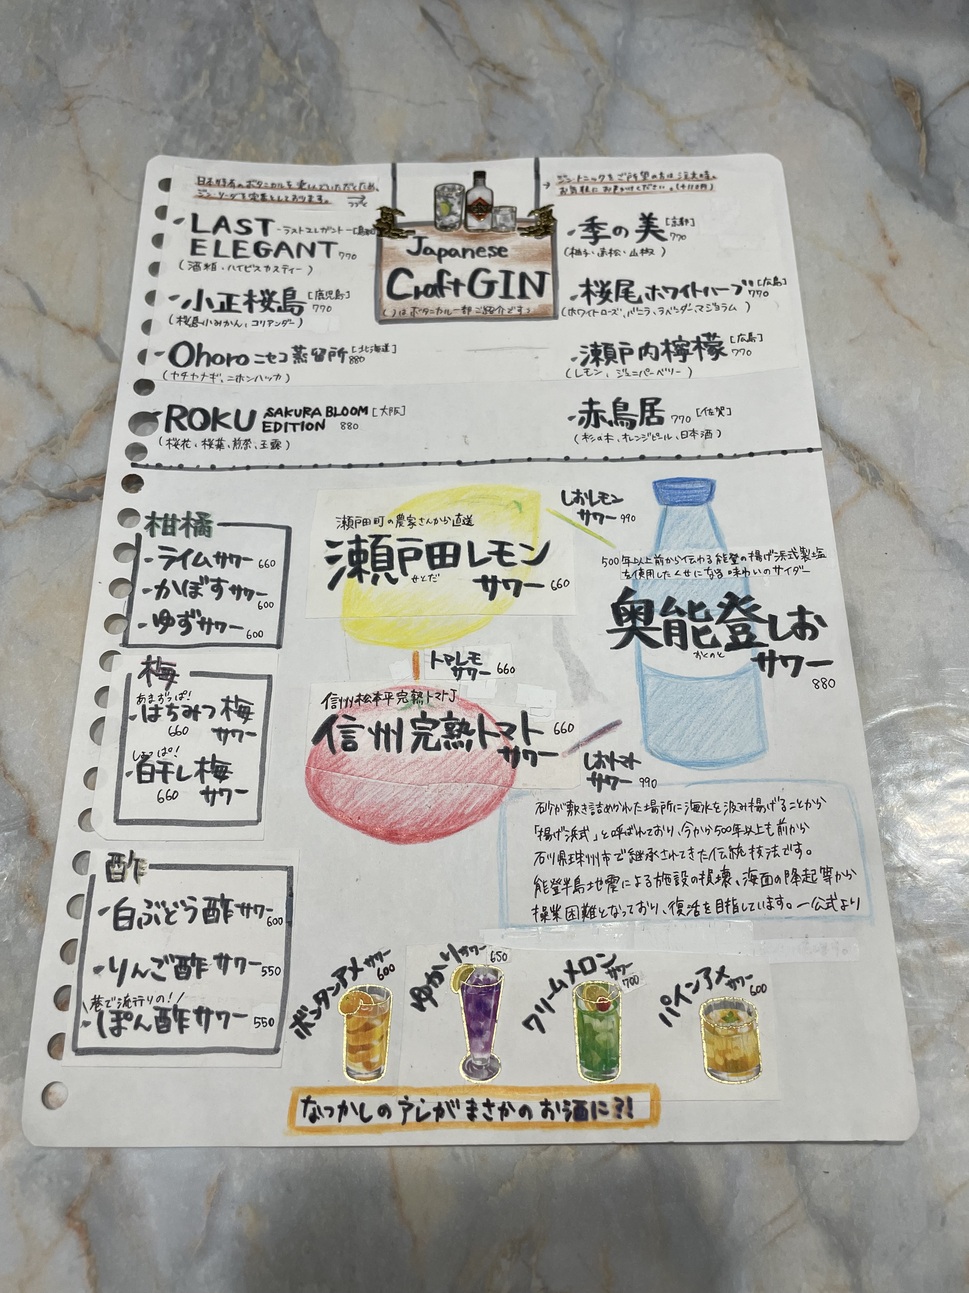 日本好有のボタニカルを楽しんでいただくため、
ジン・ソーダを定番としております。
ジン・トニックをご所望の方は注文時、
お気軽にお申しつけください。(+110円)
Japanese
Craft GIN
( )はボタニカル一部ご紹介です
LAST ーラストエレガントー
ELEGANT 770
(酒粕・ハイビスカスティー)
小正桜島 [鹿児島] 770
(桜島小みかん、コリアンダー)
Ohoro ニセコ蒸留所 [北海道] 880
(ヤチヤナギ、ニホンハッカ)
ROKU SAKURA BLOOM EDITION [大阪] 880
(桜花、桜葉、煎茶、玉露)
季の美 [京都] 770
(柚子、赤松、山椒)
桜尾ホワイトハーブ [広島] 770
(ホワイトローズ、バニラ、ラベンダー、マジョラム)
瀬戸内檸檬 [広島] 770
(レモン、ジュニパーベリー)
赤鳥居 770 [佐賀]
(杉の木、オレンジピール、日本酒)
柑橘
・ライムサワー 660
・かぼすサワー 600
・ゆずサワー 600
梅
あまずっぱ!
・はちみつ梅サワー 660
しょっぱ!
・白干し梅サワー 660
酢
・白ぶどう酢サワー 600
・りんご酢サワー 550
\巷で流行りの!/
・ぽん酢サワー 550
瀬戸田町の農家さんから直送
瀬戸田レモン
せとだ
サワー 660
しおレモン
サワー 990
トマレモ
サワー 660
信州松本平完熟トマト
信州完熟トマト
サワー 660
しおトマト
サワー 990
500年以上前から伝わる能登の揚げ浜式製塩
を使用したくせになる味わいのサイダー
奥能登しお
おくのと
サワー
880
砂が敷き詰められた場所に海水を汲み揚げることから
「揚げ浜式」と呼ばれており、今から500年以上も前から
石川県珠州市で継承されてきた伝統技法です。
能登半島地震による施設の損壊、海面の隆起等から
操業困難となっており、復活を目指しています。ー公式より
ボンタンアメサワー 600
ゆかりサワー 650
クリームメロンサワー 700
パインアメサワー 600
なつかしのアレがまさかのお酒に?!